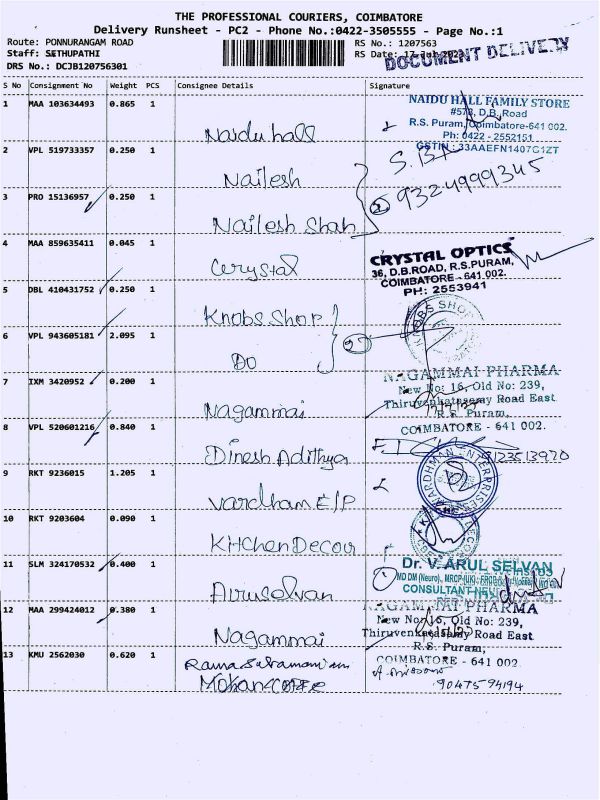 THE PROFESSIONAL COURIERS, COIMBATORE
Delivery Runsheet - PC2 - Phone No.:0422-3505555 - Page No.:1
Route: PONNURANGAM ROAD
RS No.: 1207563
Staff: SETHUPATHI
RS Date: 17-Jul-2023
DOCUMENT DELIVERY
DRS No.: DCJB120756301
S No Consignment No Weight PCS Consignee Details Signature
1 MAA 103634493 0.865 1
Naidu hall
NAIDU HALL FAMILY STORE
D.B. Road
R.S. Puram, Coimbatore-641 002.
Ph: 0422 - 2552151
GSTIN : 33AAEFN1407G1ZT
2 VPL 519733357 0.250 1
Nailesh
9324999345
3 PRO 15136957 0.250 1
Nailesh Shah
4 MAA 859635411 0.045 1
Crystal
CRYSTAL OPTICS
36, D.B.ROAD, R.S.PURAM,
COIMBATORE - 641 002.
PH: 2553941
5 DBL 410431752 0.250 1
Knobs Shop
KNOBS SHOP
6 VPL 943605181 2.095 1
Do
7 IXM 3420952 0.200 1
Nagammai
NAGAMMAI PHARMA
New No: 16, Old No: 239,
Thiruvenkatasamy Road East
R.S. Puram,
COIMBATORE - 641 002.
8 VPL 520601216 0.840 1
Dinesh Adithya
8123513970
9 RKT 9236015 1.205 1
Vardham E/P
VARDHMAN ENTERPRISES
10 RKT 9203604 0.090 1
Kitchen Decour
11 SLM 324170532 0.400 1
Arulselvan
Dr. V. ARUL SELVAN
MD DM (Neuro)., MRCP (UK).,
CONSULTANT
12 MAA 299424012 0.380 1
Nagammai
NAGAMMAI PHARMA
New No: 16, Old No: 239,
Thiruvenkatasamy Road East
R.S. Puram,
COIMBATORE - 641 002
13 KMU 2562030 0.620 1
Rama Subramanium
Mohan
9047594194